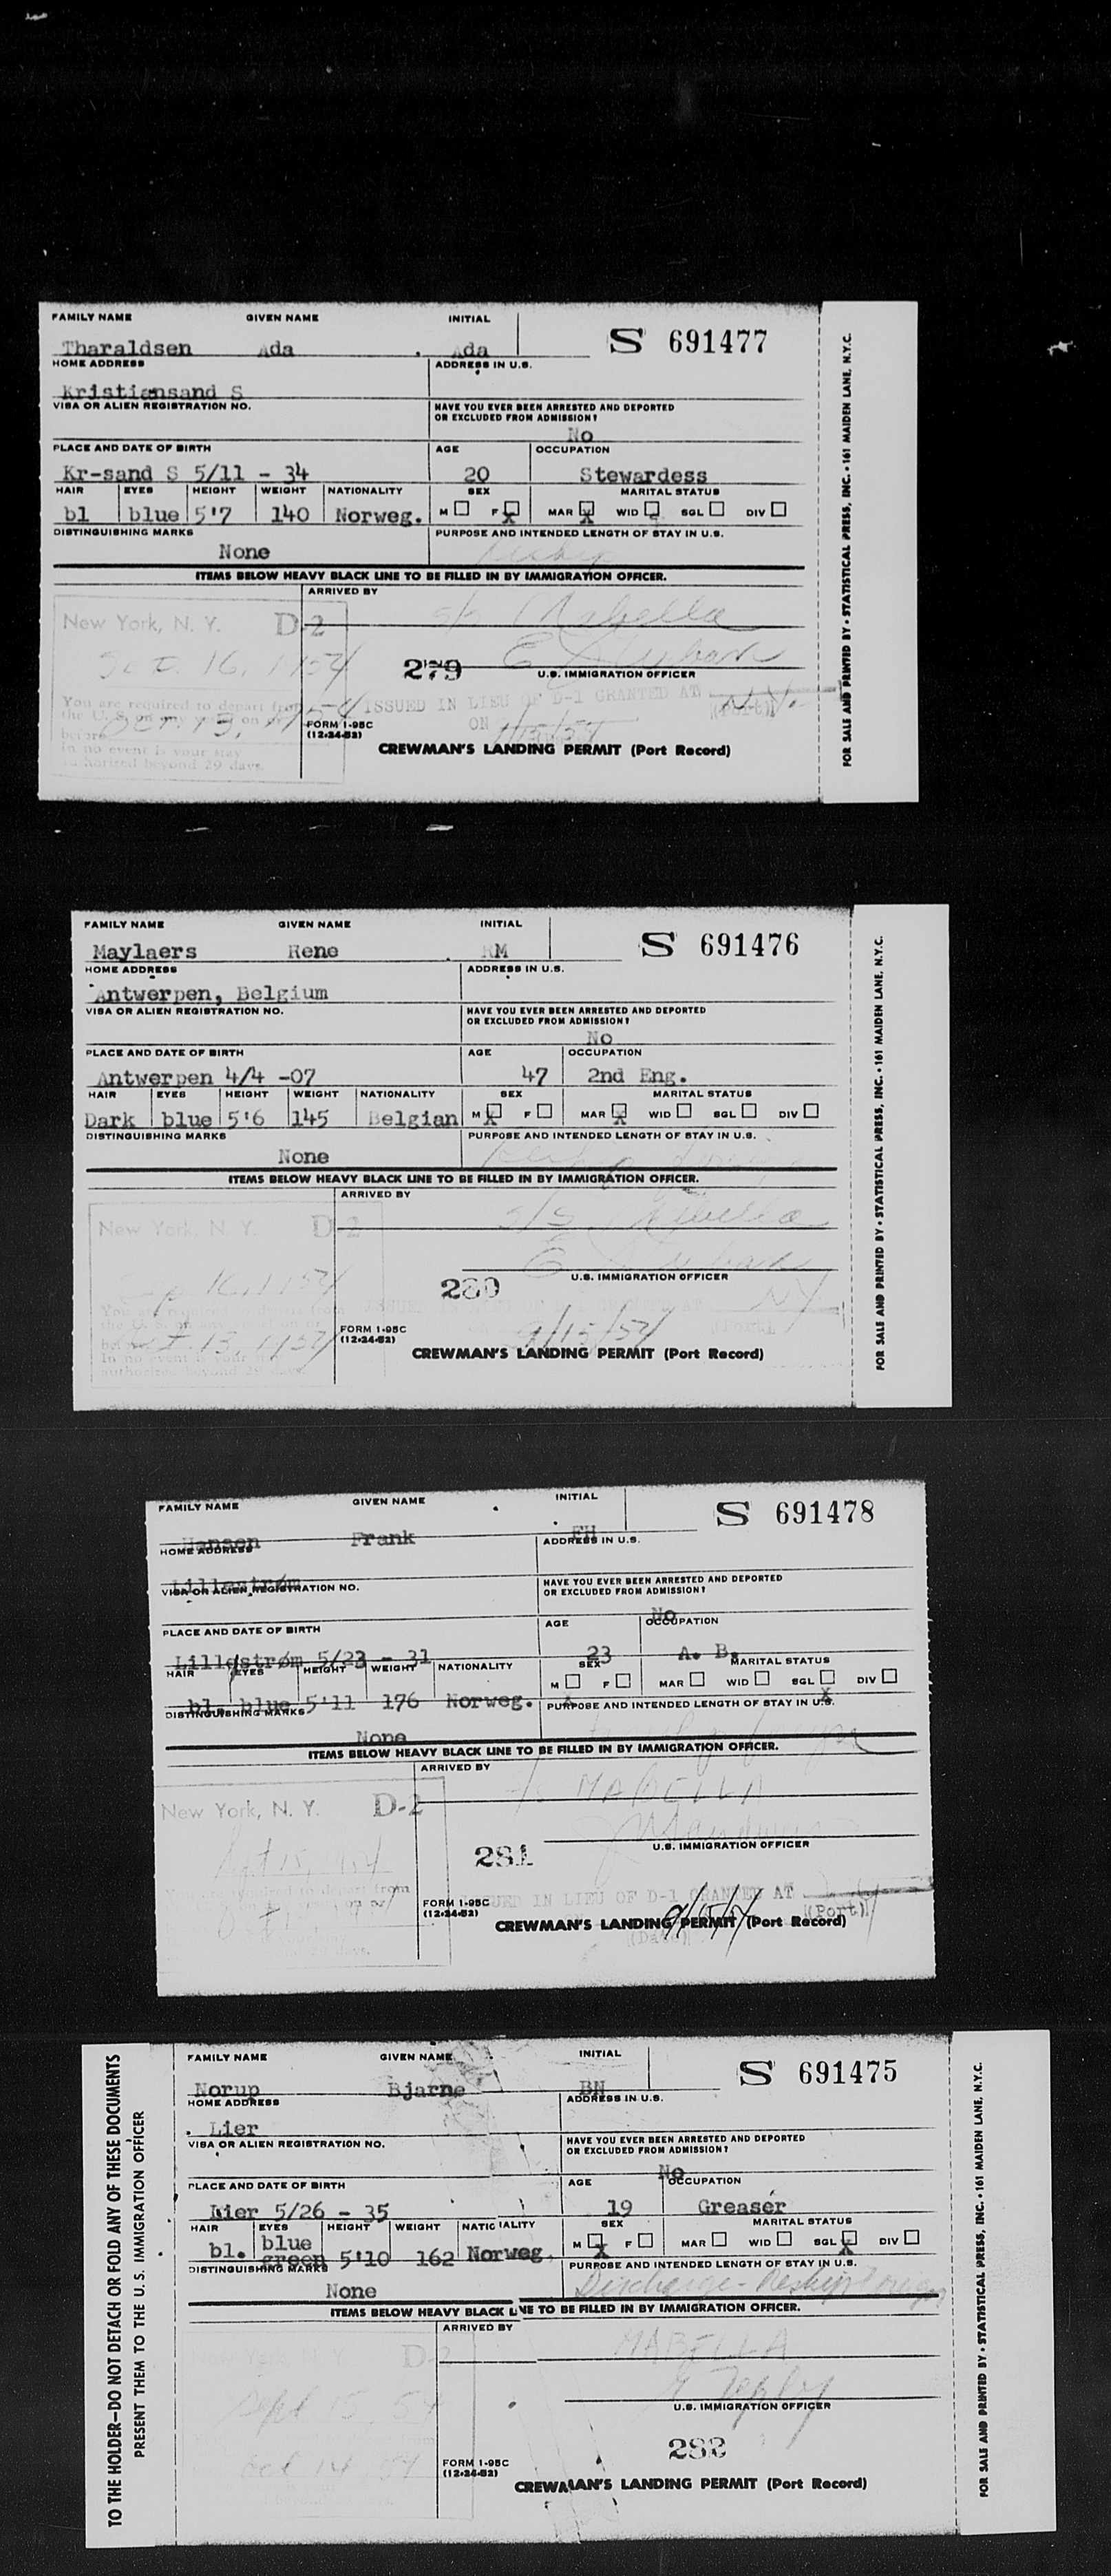 FAMILY NAME GIVEN NAME INITIAL
S 691477
Tharaldsen Ada Ada
HOME ADDRESS ADDRESS IN U.S.
Kristiansand S
VISA OR ALIEN REGISTRATION NO. HAVE YOU EVER BEEN ARRESTED AND DEPORTED
OR EXCLUDED FROM ADMISSION?
No
PLACE AND DATE OF BIRTH AGE OCCUPATION
Kr-sand S 5/11 - 34 20 Stewardess
HAIR EYES HEIGHT WEIGHT NATIONALITY SEX MARITAL STATUS
bl blue 5'7 140 Norweg. M F X MAR X WID SGL DIV
DISTINGUISHING MARKS PURPOSE AND INTENDED LENGTH OF STAY IN U.S.
None
ITEMS BELOW HEAVY BLACK LINE TO BE FILLED IN BY IMMIGRATION OFFICER.
ARRIVED BY
New York, N. Y. D-2 s/s Mabella
Sept. 16, 1954
279
U.S. IMMIGRATION OFFICER
You are required to depart from
ISSUED IN LIEU OF D-1 GRANTED AT N.Y.
(Port)
the U.S. on any vessel on or
before Oct. 13, 1954
ON
FORM I-95C
(12-24-52)
In no event is your stay
authorized beyond 29 days.
CREWMAN'S LANDING PERMIT (Port Record)
FOR SALE AND PRINTED BY • STATISTICAL PRESS, INC. • 161 MAIDEN LANE, N.Y.C.
FAMILY NAME GIVEN NAME INITIAL
S 691476
Maylaers Rene RM
HOME ADDRESS ADDRESS IN U.S.
Antwerpen, Belgium
VISA OR ALIEN REGISTRATION NO. HAVE YOU EVER BEEN ARRESTED AND DEPORTED
OR EXCLUDED FROM ADMISSION?
No
PLACE AND DATE OF BIRTH AGE OCCUPATION
Antwerpen 4/4 -07 47 2nd Eng.
HAIR EYES HEIGHT WEIGHT NATIONALITY SEX MARITAL STATUS
Dark blue 5'6 145 Belgian M X F MAR X WID SGL DIV
DISTINGUISHING MARKS PURPOSE AND INTENDED LENGTH OF STAY IN U.S.
None
ITEMS BELOW HEAVY BLACK LINE TO BE FILLED IN BY IMMIGRATION OFFICER.
ARRIVED BY
New York, N. Y. D-2 s/s
280
U.S. IMMIGRATION OFFICER
NY
(Port)
FORM I-95C
(12-24-52)
9/15/54
In no event is your stay
authorized beyond 29 days.
CREWMAN'S LANDING PERMIT (Port Record)
FOR SALE AND PRINTED BY • STATISTICAL PRESS, INC. • 161 MAIDEN LANE, N.Y.C.
FAMILY NAME GIVEN NAME INITIAL
S 691478
Hansen Frank FH
HOME ADDRESS ADDRESS IN U.S.
Lillestrøm
VISA OR ALIEN REGISTRATION NO. HAVE YOU EVER BEEN ARRESTED AND DEPORTED
OR EXCLUDED FROM ADMISSION?
No
PLACE AND DATE OF BIRTH AGE OCCUPATION
Lillestrøm 5/23 - 31 23 A. B.
HAIR EYES HEIGHT WEIGHT NATIONALITY SEX MARITAL STATUS
M F MAR WID SGL DIV
bl. blue 5'11 176 Norweg. X X
DISTINGUISHING MARKS PURPOSE AND INTENDED LENGTH OF STAY IN U.S.
None
ITEMS BELOW HEAVY BLACK LINE TO BE FILLED IN BY IMMIGRATION OFFICER.
ARRIVED BY
New York, N. Y. D-2 MABELLA
281
U.S. IMMIGRATION OFFICER
ISSUED IN LIEU OF D-1 GRANTED AT
(Port)
FORM I-95C
(12-24-52)
9/15/54
CREWMAN'S LANDING PERMIT (Port Record)
(Date)
FAMILY NAME GIVEN NAME INITIAL
S 691475
Norup Bjarne BN
HOME ADDRESS ADDRESS IN U.S.
Lier
VISA OR ALIEN REGISTRATION NO. HAVE YOU EVER BEEN ARRESTED AND DEPORTED
OR EXCLUDED FROM ADMISSION?
No
PLACE AND DATE OF BIRTH AGE OCCUPATION
Lier 5/26 - 35 19 Greaser
HAIR EYES HEIGHT WEIGHT NATIONALITY SEX MARITAL STATUS
bl. blue green 5'10 162 Norweg. M X F MAR WID SGL X DIV
DISTINGUISHING MARKS PURPOSE AND INTENDED LENGTH OF STAY IN U.S.
None Discharge - Reship Foreign
ITEMS BELOW HEAVY BLACK LINE TO BE FILLED IN BY IMMIGRATION OFFICER.
ARRIVED BY
D-2 MABELLA
Sept 15 54
U.S. IMMIGRATION OFFICER
282
Oct 14 54
FORM I-95C
(12-24-52)
CREWMAN'S LANDING PERMIT (Port Record)
TO THE HOLDER—DO NOT DETACH OR FOLD ANY OF THESE DOCUMENTS
PRESENT THEM TO THE U.S. IMMIGRATION OFFICER
FOR SALE AND PRINTED BY • STATISTICAL PRESS, INC. • 161 MAIDEN LANE, N.Y.C.